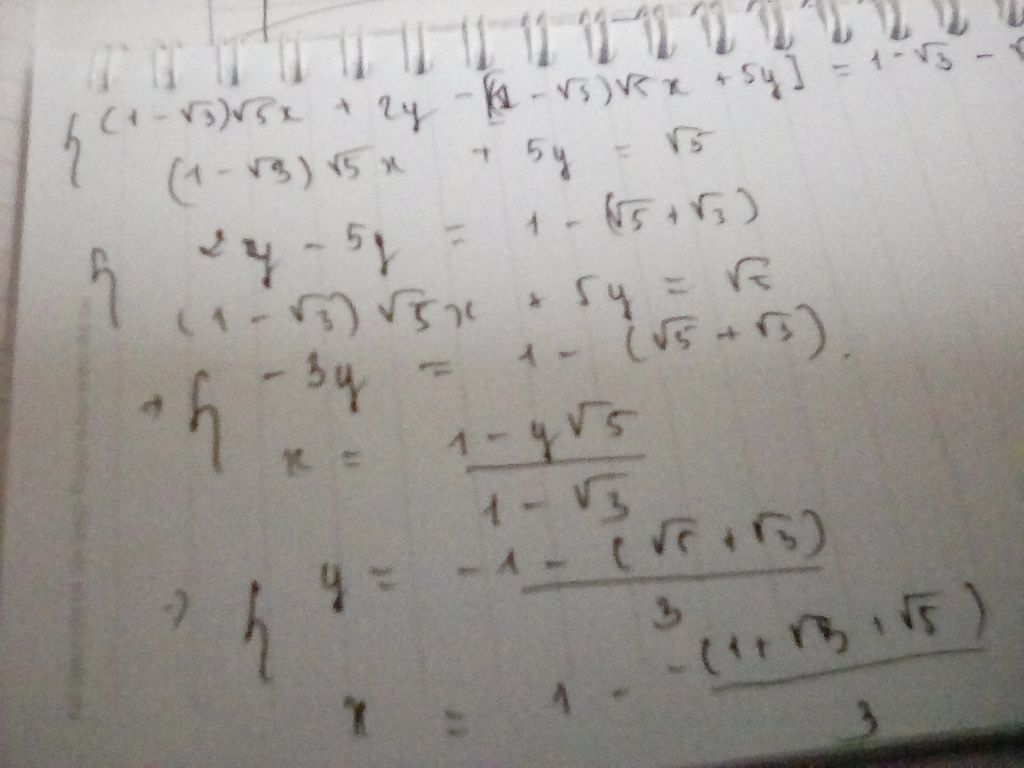 { (1-√3)√5x + 2y - [(1-√3)√5x + 5y] = 1-√3 -
(1-√3)√5x + 5y = √5
{ 2y - 5y = 1 - (√5+√3)
(1-√3)√5x + 5y = √5
→ { -3y = 1 - (√5+√3).
x = (1-y√5)/(1-√3)
→ { y = -1-(√5+√3)/3
x = 1 - -(1+√3+√5)/3